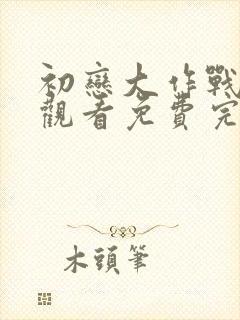 初戀大作戰
觀看免費完
木頭筆